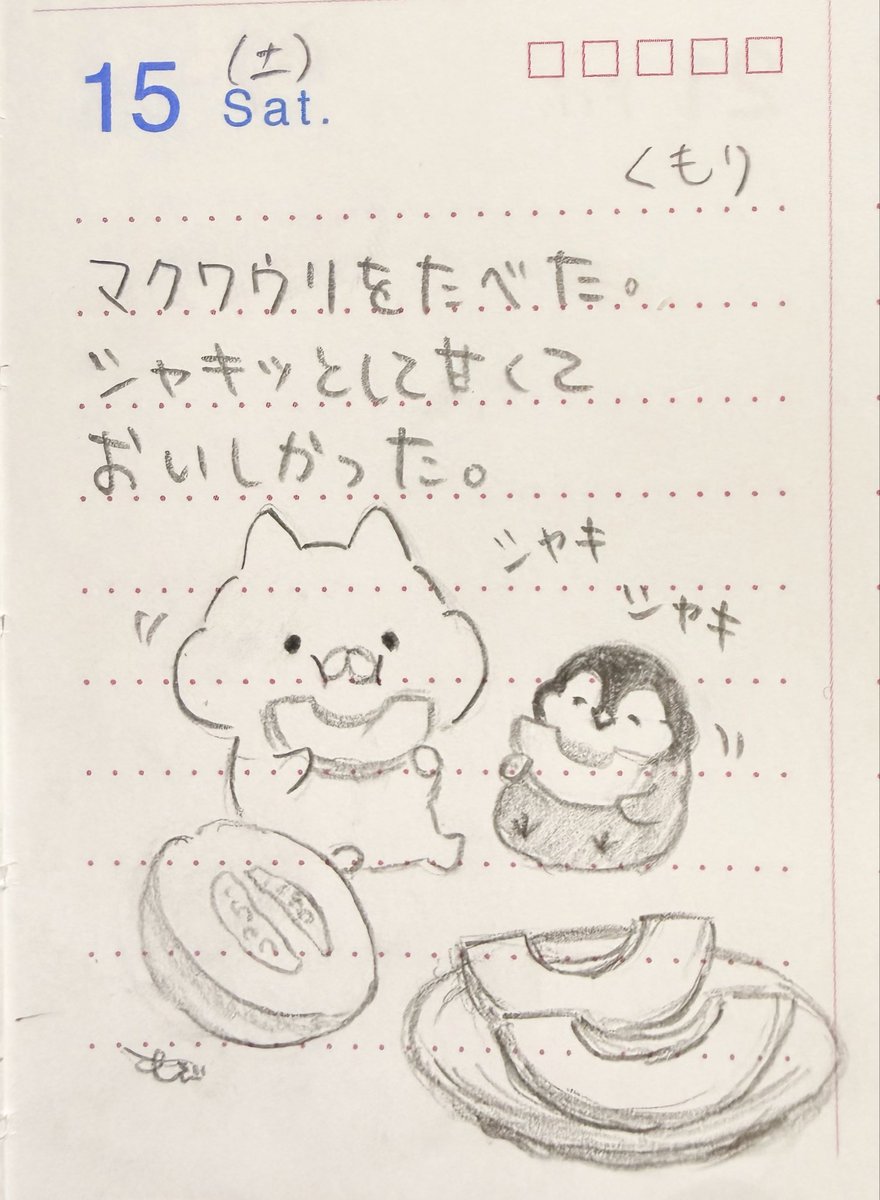 15 (土)
Sat.
くもり
マクワウリをたべた。
シャキッとして甘くて
おいしかった。
シャキ
シャキ